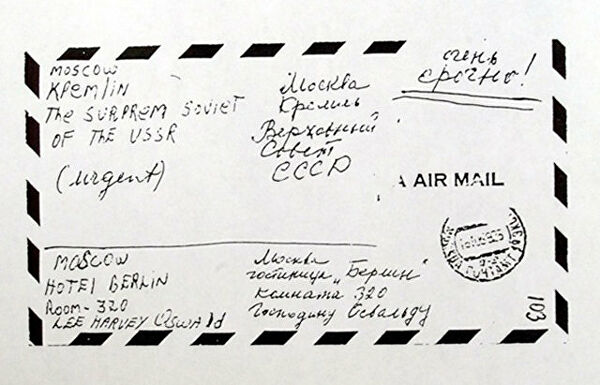 MOSCOW
KREMLIN
The SURPREM SOVIET
OF THE USSR
(urgent)
Москва
Кремль
Верховный
Совет
СССР
очень
срочно!
AIR MAIL
MOSCOW
HOTEl BERLIN
ROOM - 320
LEE HARVEY OSWAld
Москва
гостиница „Берлин"
комната 320
Господину Освальду
МОСКВА ПОЧТАМТ
103